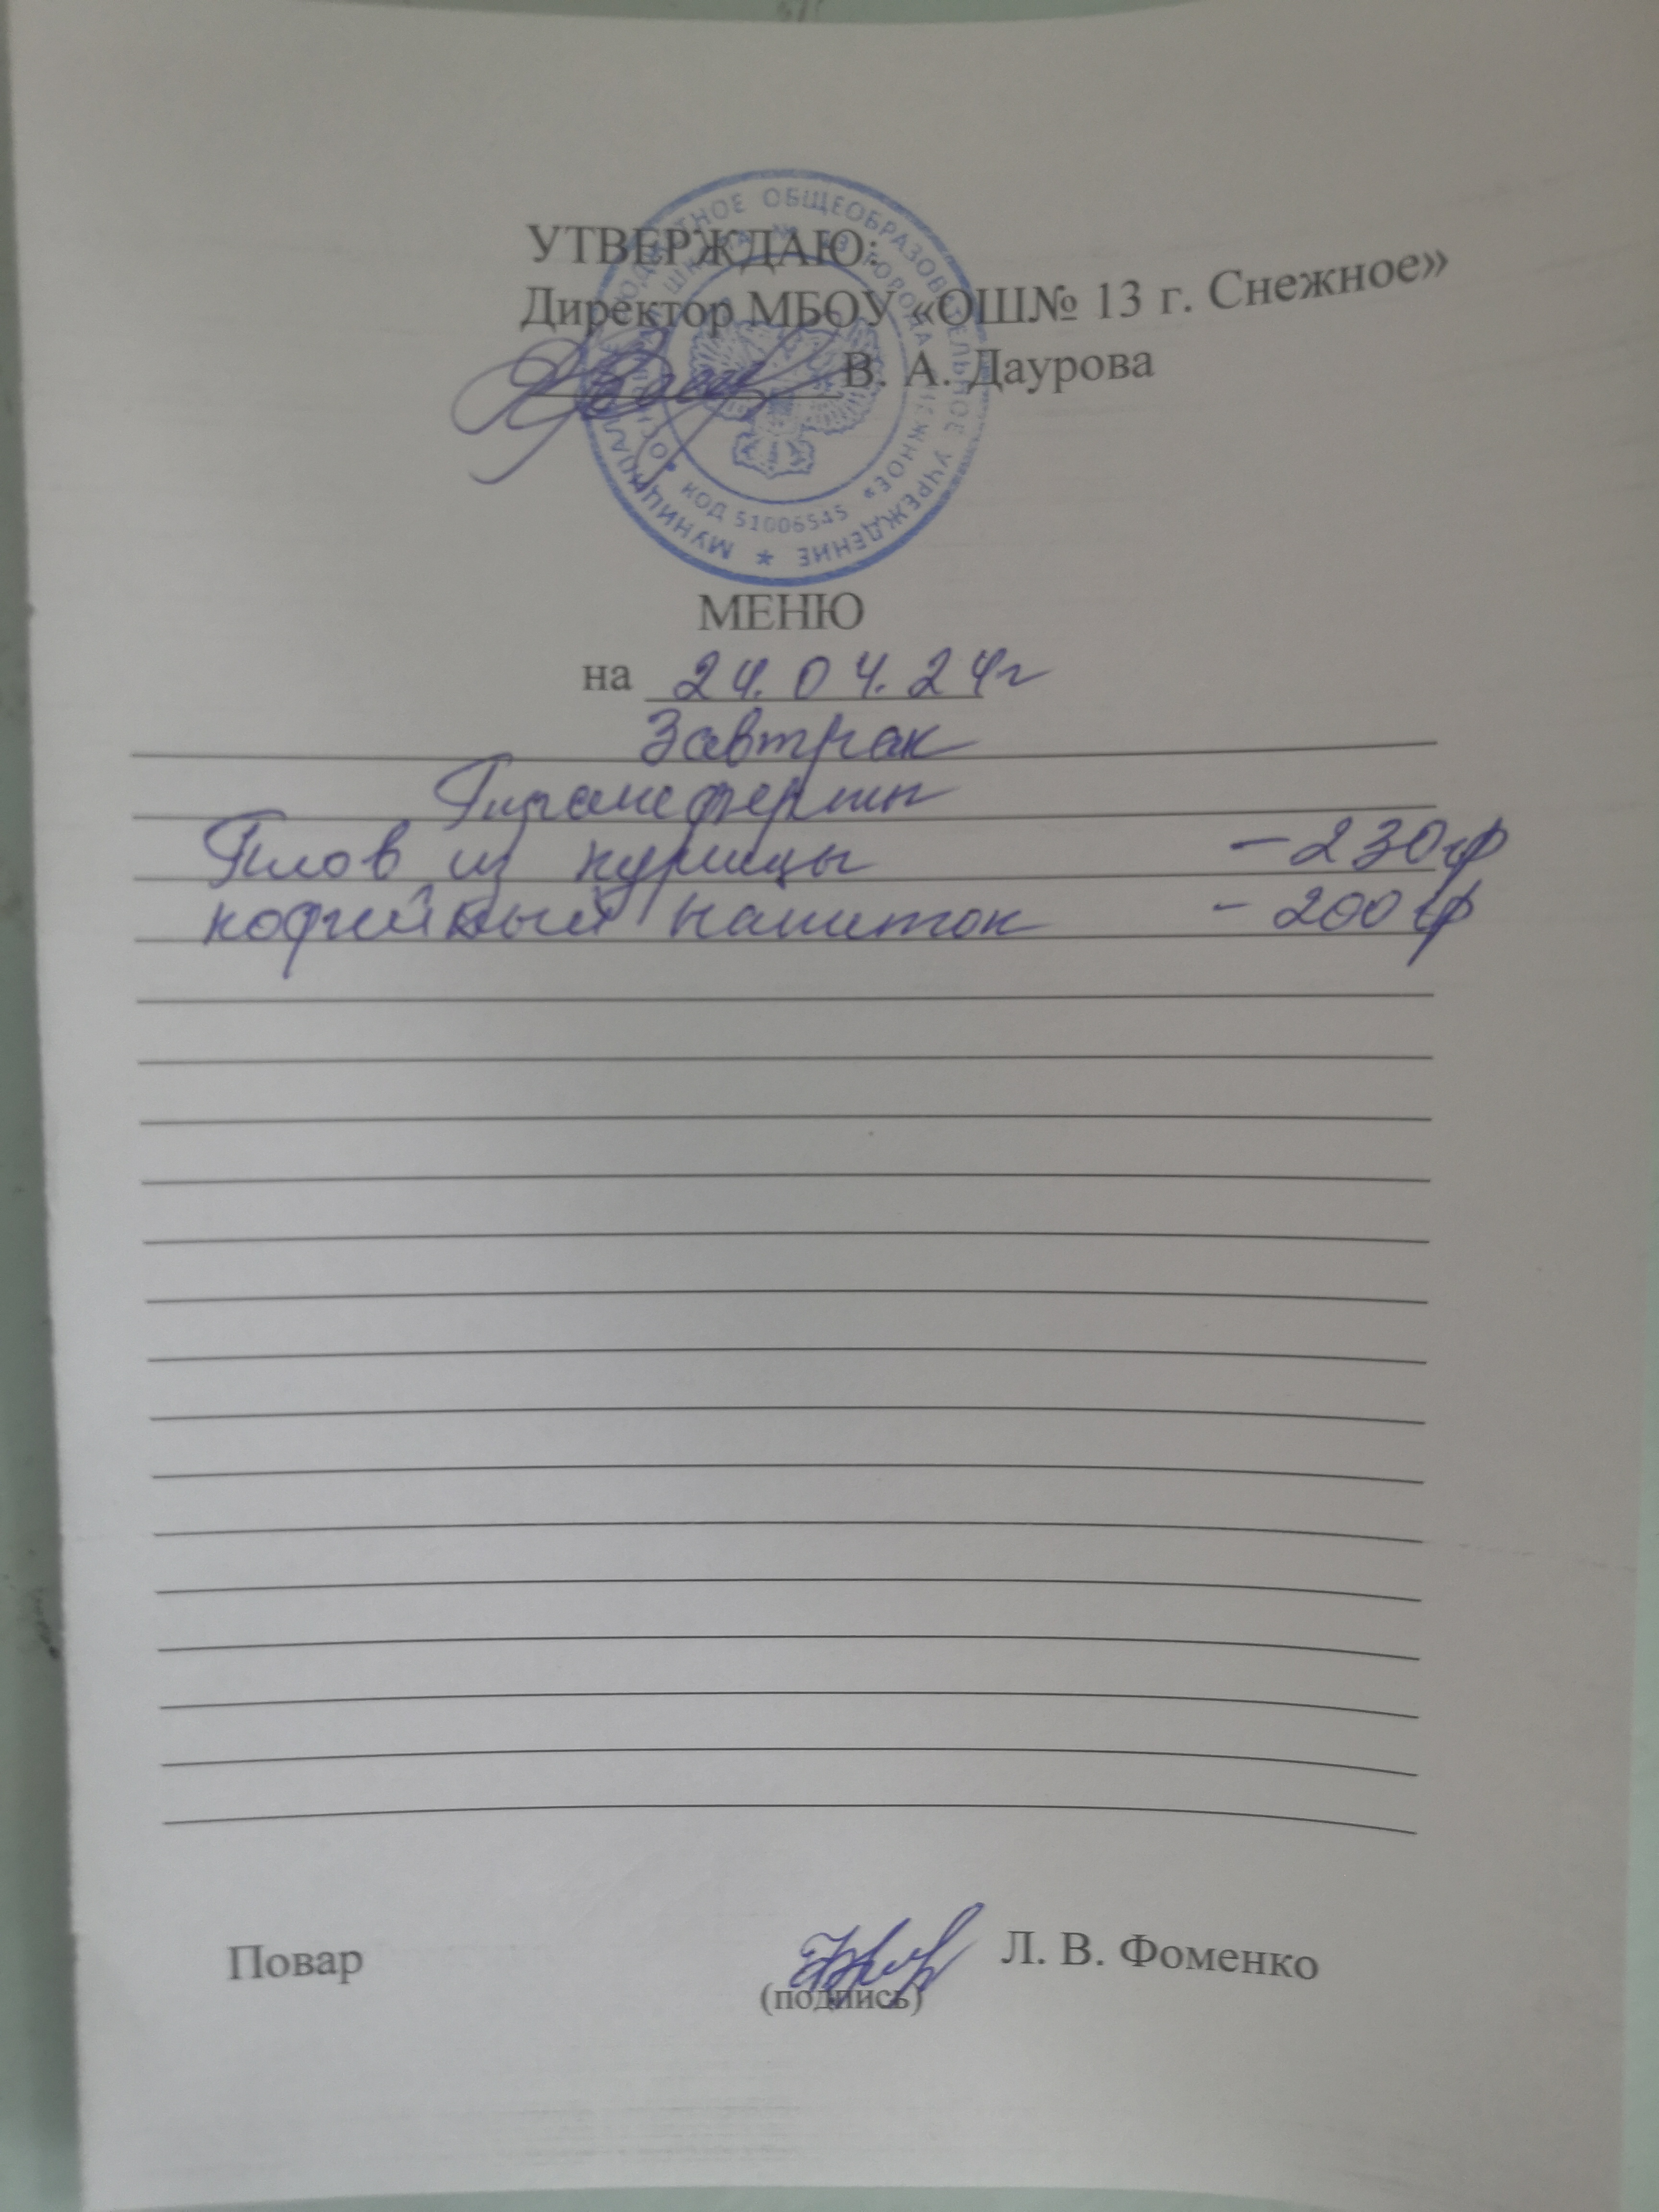 УТВЕРЖДАЮ:
Директор МБОУ «ОШ№ 13 г. Снежное»
В. А. Даурова
МУНИЦИПАЛЬНОЕ БЮДЖЕТНОЕ ОБЩЕОБРАЗОВАТЕЛЬНОЕ УЧРЕЖДЕНИЕ *
ШКОЛА № 13 ГОРОДА СНЕЖНОЕ»
КОД 51006545
МЕНЮ
на 24.04.24г
Завтрак
Трансферты
Плов из курицы – 230гр
кофейный напиток – 200гр
Повар Л. В. Фоменко
(подпись)